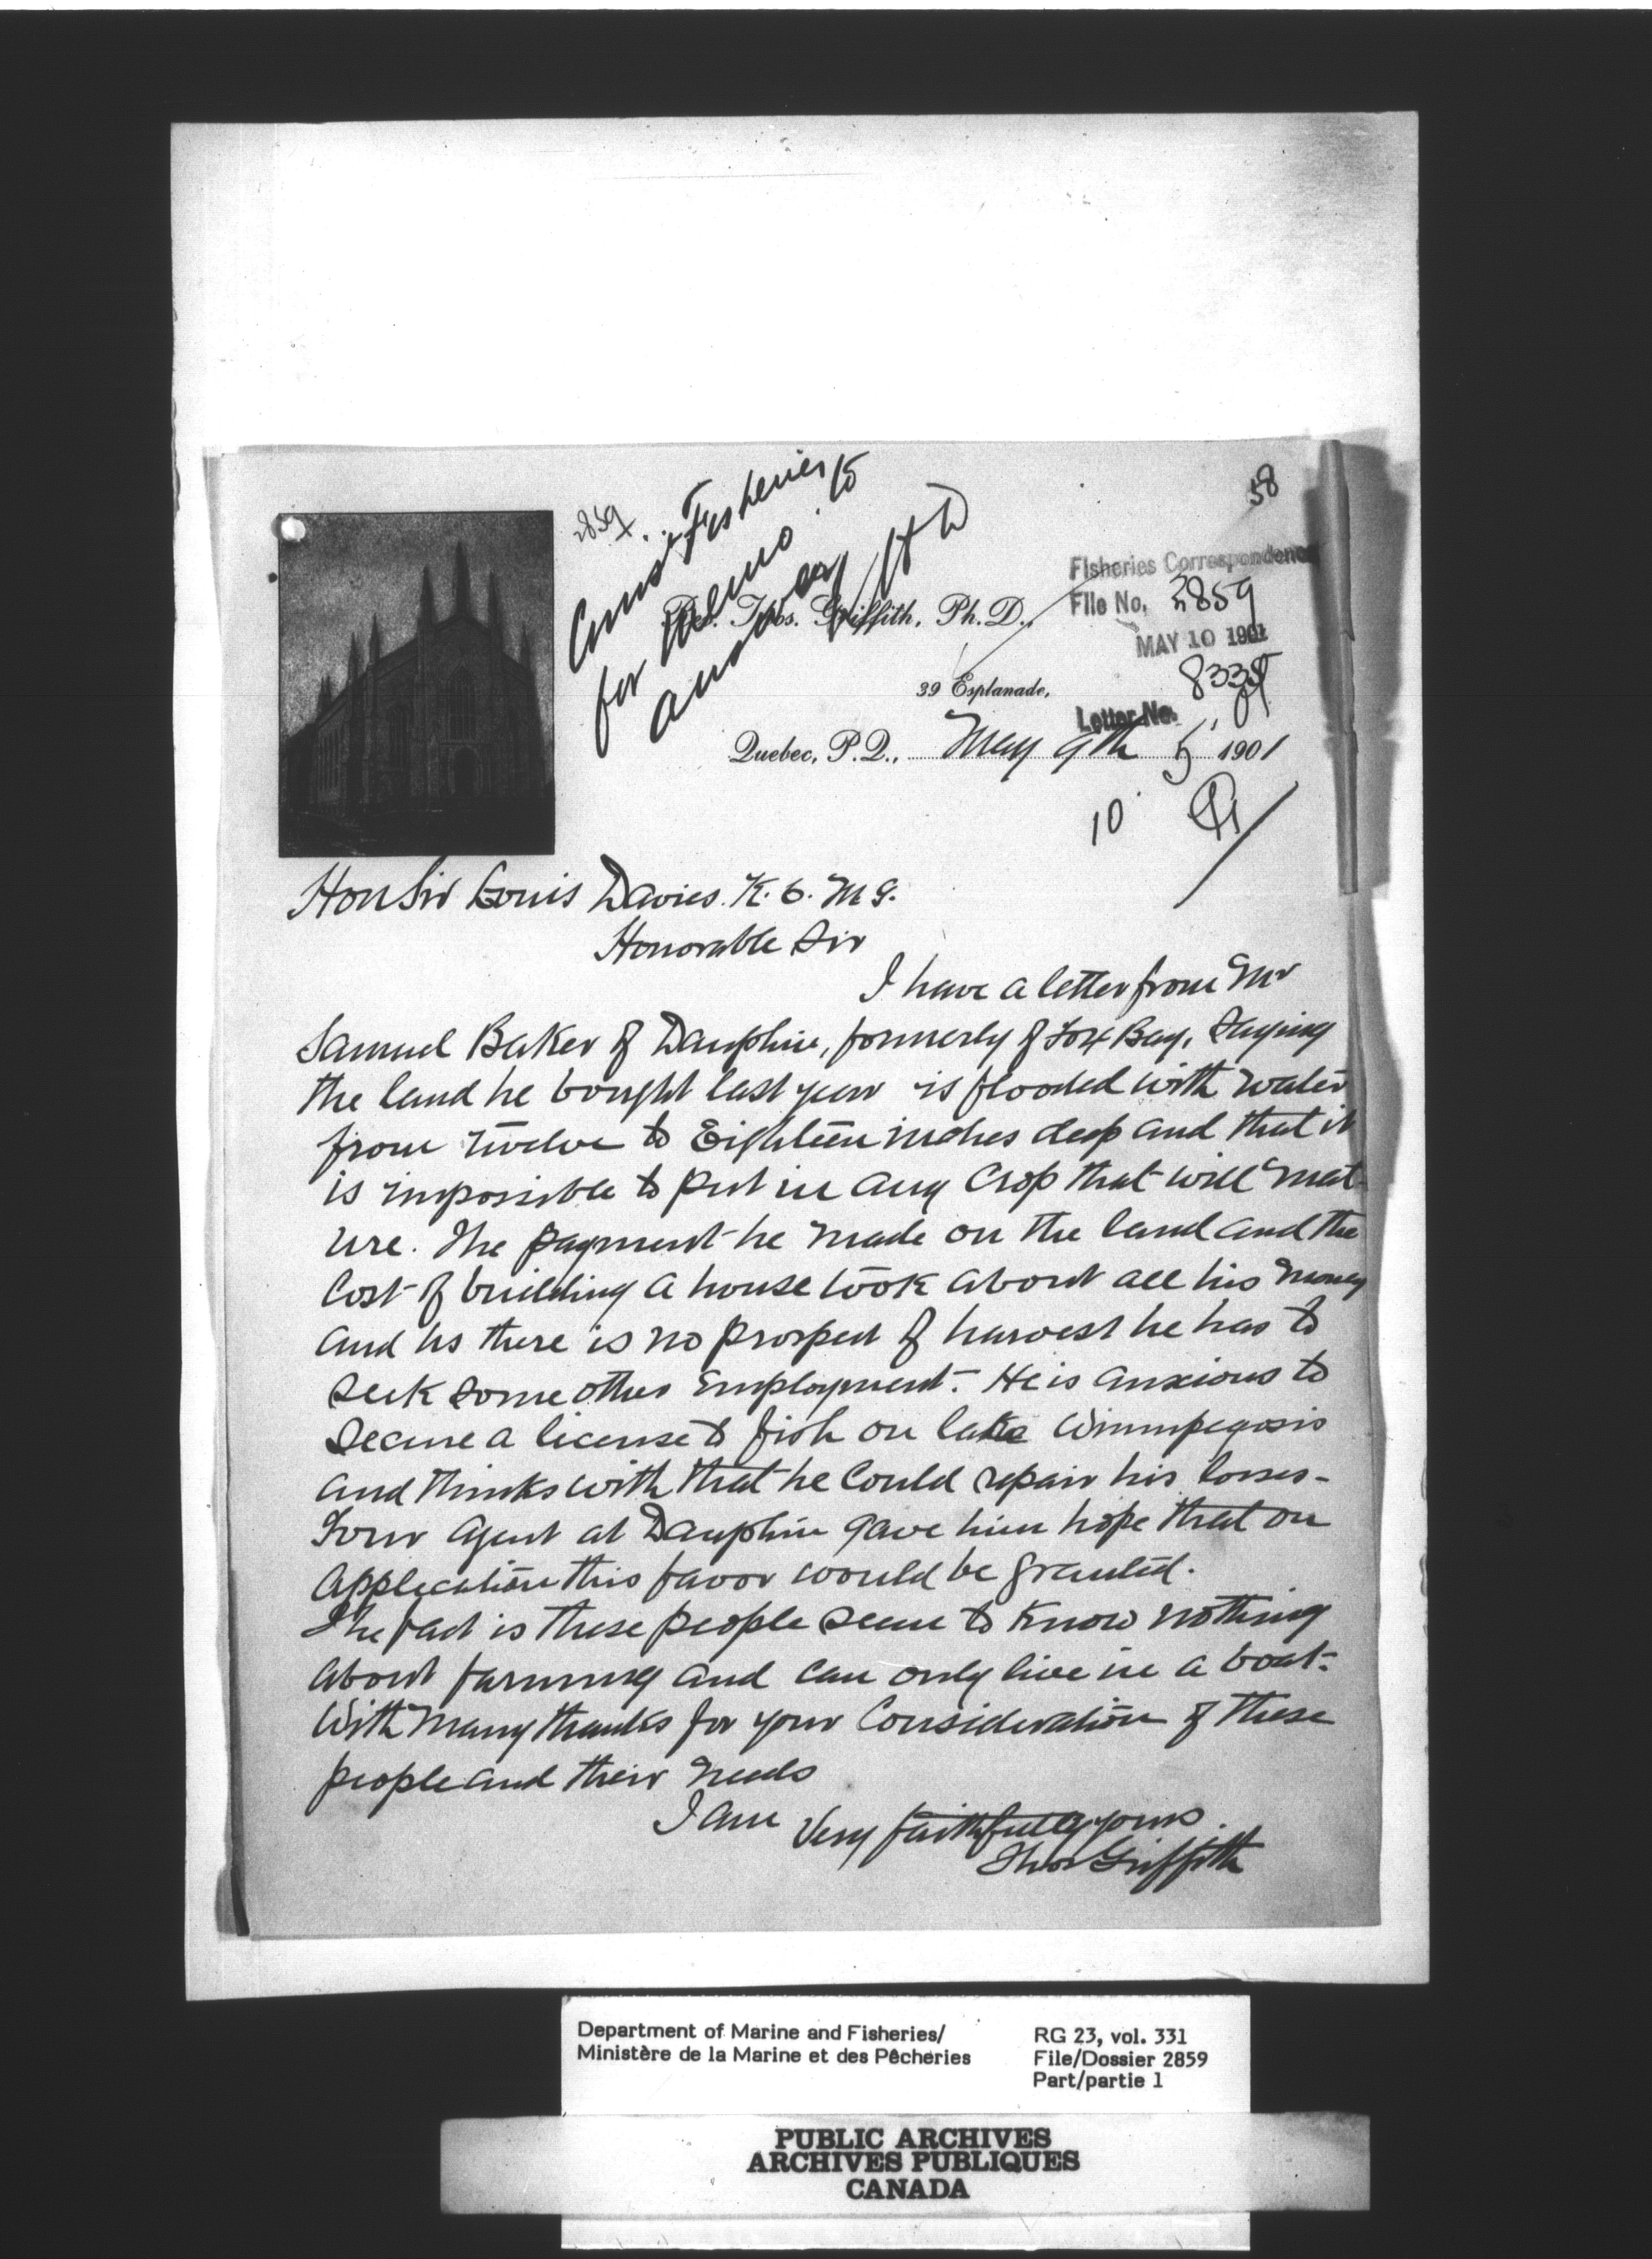 58
2859
Coms Fisheries
for memo. to
answer
Rev. Thos. Griffith, Ph. D.,
Fisheries Correspondence
File No. 2859
MAY 10 1901
39 Esplanade,
8335
Letter No.
Quebec, P.Q., May 9th 1901
10 5
Hon Sir Louis Davies. K. C. M G.
Honorable Sir
I have a letter from Mr
Samuel Baker of Dauphin, formerly of Fox Bay, Saying
the land he bought last year is flooded with water
from twelve to Eighteen inches deep and that it
is impossible to put in any Crop that will mat-
ure. The payment he made on the land and the
Cost of building a house took about all his money
and as there is no prospect of harvest he has to
seek some other Employment. He is anxious to
Secure a license to fish on lake Winnipegosis
and thinks with that he could repair his losses-
Your Agent at Dauphin gave him hope that on
application this favor would be granted.
The fact is these people seem to know nothing
about farming and can only live in a boat.
With many thanks for your Consideration of these
people and their needs
I am Very faithfully yours.
Thos Griffith
Department of Marine and Fisheries/
Ministère de la Marine et des Pêcheries
RG 23, vol. 331
File/Dossier 2859
Part/partie 1
PUBLIC ARCHIVES
ARCHIVES PUBLIQUES
CANADA